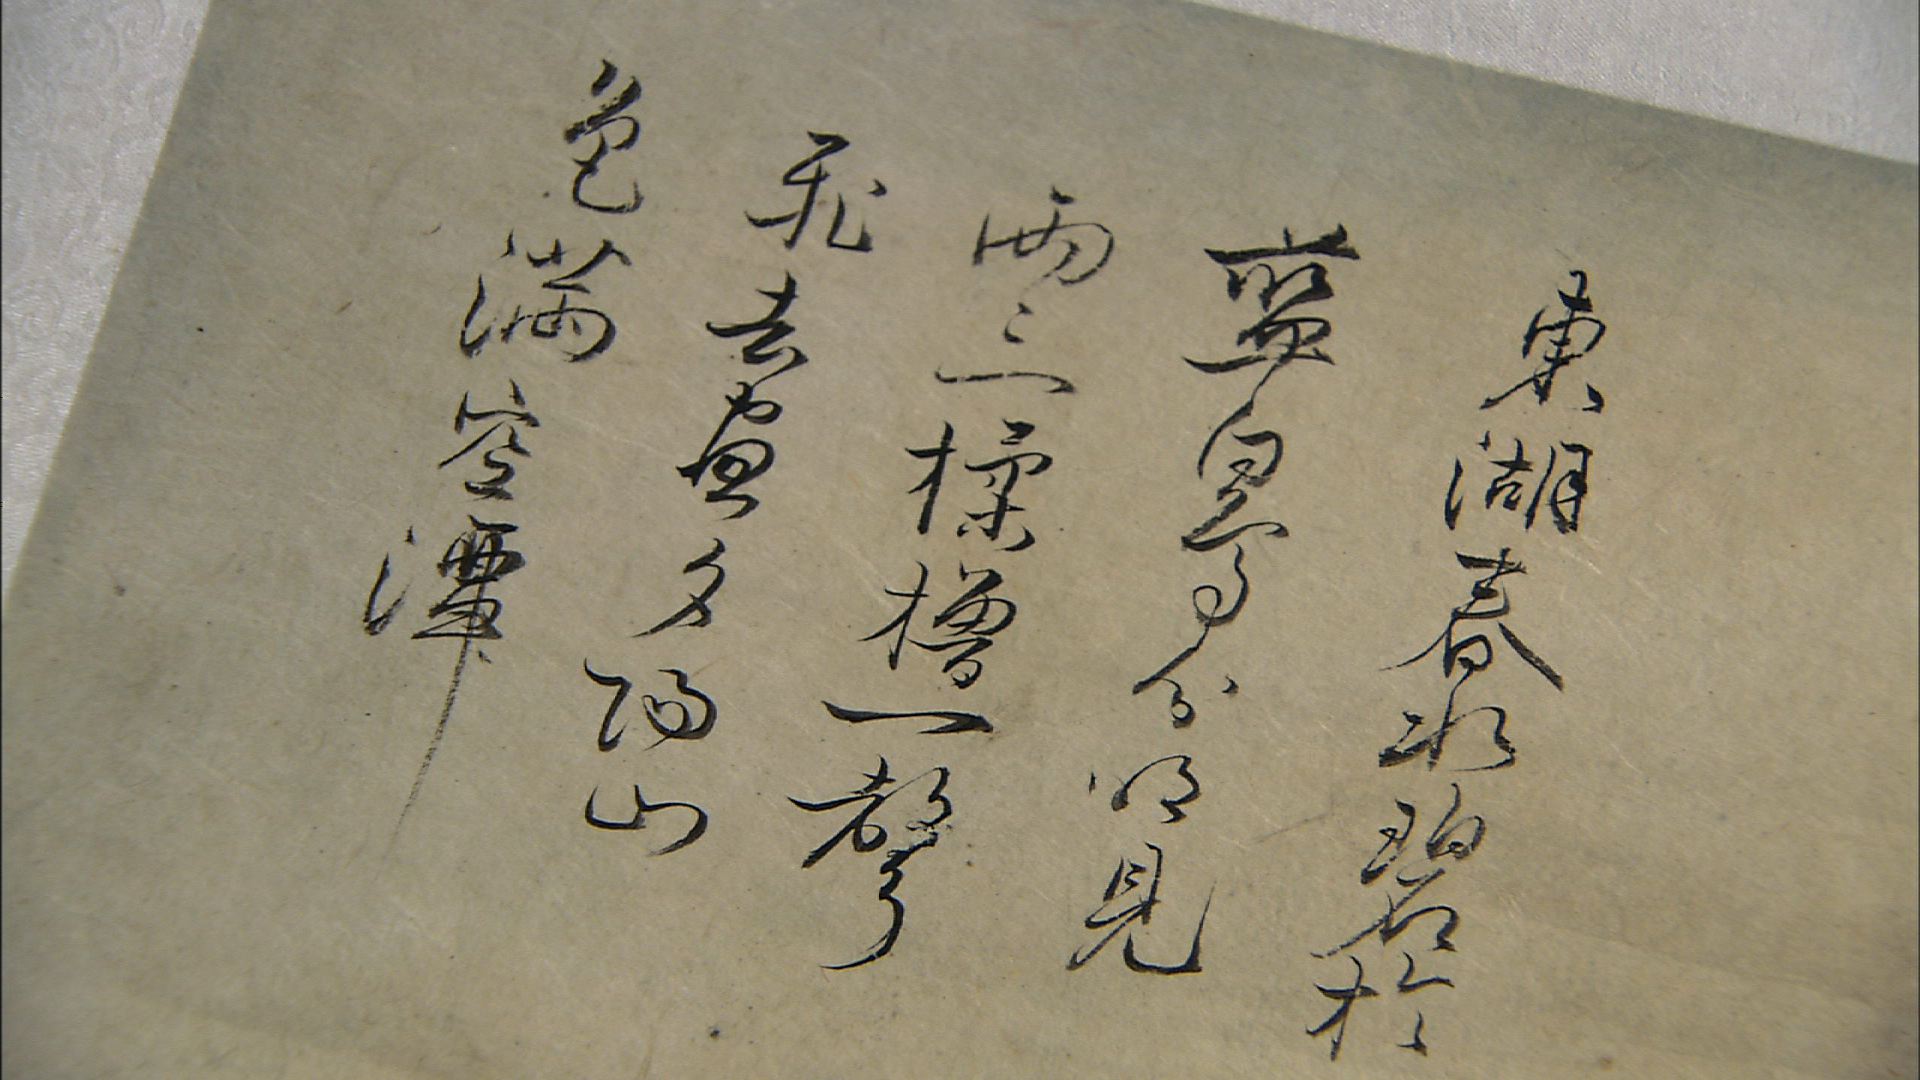 東湖春水碧於
藍白鳥分明見
兩三橾櫓一聲
飛去盡夕陽山
色滿空潭